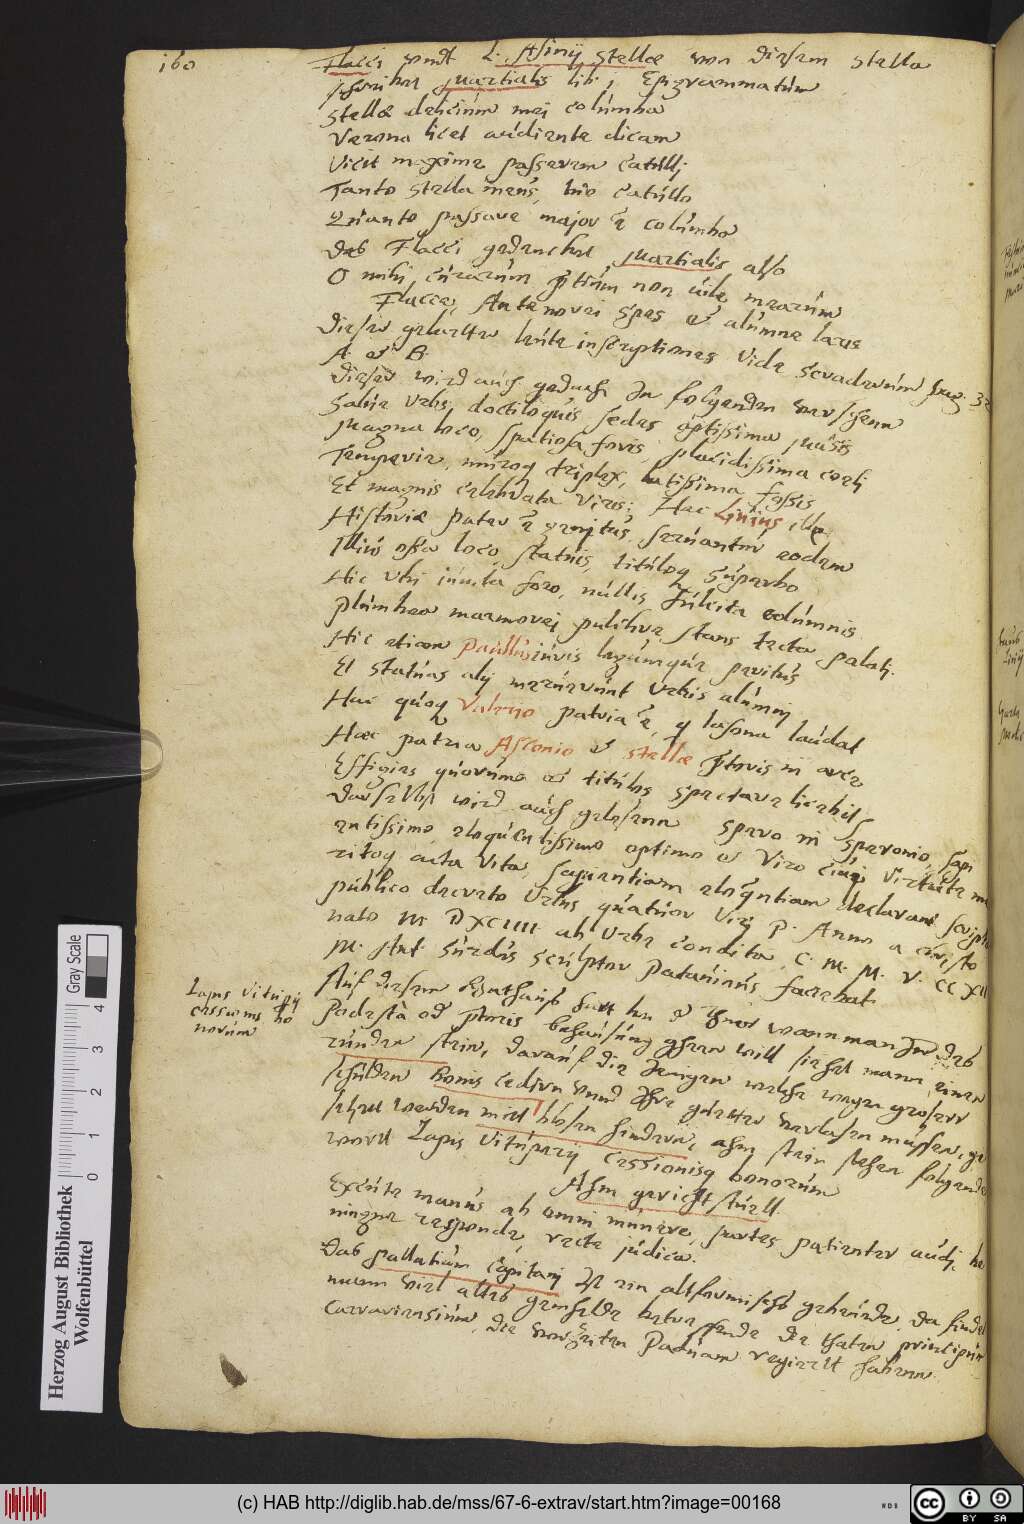 160
Flacci undt L. Asinij Stellæ von diesem Stella
schreibet Martialis lib. 1 Epigrammatúm
Stellæ delicium mei columba
Verona licet audiente dicam
Vicit maxime passerem Catulli
Tanto Stella meus, tuo Catullo
Quanto passere major e columba
des Flacci gedencket Martialis also
O mihi curarum ptium non vile mearum
Flacce, Antenorei spes et alumne laris
Dieser gelertten leute inscriptiones vide Scradeeum pag. 32
A. et B.
dieser wird auch gedacht in folgenden versschenn
Salve Urbs, doctiloquis sedes optissima Musis
Magna loco, spatiosa foris, placidissima coeli
Temperie, muroq triplex, latissima fossis
Et magnis celebrata viris; Hac Livius ille
Historiæ pater e genitus, servantur eodem
Illius ossa loco, statuis, tituloq superbo
Hic ubi iuncta foro, nullis fulcita columnis
Plumbeo marmorei pulchre stant tecta palatj.
Hic etiam Paullus iuris legumque peritus
Et statuas alij meruerunt Urbis alumnj
Hac quoq Valerio patria e, q Iasona laudat
Hæc patria Asconio et Stellæ
Effigies quorum et titulos spectare licebit
Daselbst wird auch gelesenn Spero ni Speronio, sapi
entissimo eloquentissimo optimo et Viro
ritoq acta vita, sapientiam eloquentiam declarant scripta
publico decreto Urbis quatuor Virj P. Anno a Christo
nato M DXCIIII ab Urbe condita
M. Ant. Surdus sculptor Patavinus faciebat.
Auf diesem Rhathaus
Podesta od ptoris behausung gehen will siehet mann einen
runden stein, darauf die Jenigen welche wegen grosser
schulden Bonis cediren unnd Ihre guetter verlasen müssen, ge
setzett werden mitt blosen hindern, ahm stein stehen folgende
wortt Lapis Vituperij Cessionisq bonorum
Ahm gericht stuell
Exente manus ab omni munere, partes patienter audj, be
nigne responde, recte judica.
Das pallatium Capitanj Ist ein altformisches gebeude, da findet
mann viel altes gemeldes die thaten principum
Carrariensium, die vorzeiten Paduam regiertt habenn.
Lapis vituperij
cessionis bo
norum
Herzog August Bibliothek
Wolfenbüttel
0 1 2 3 4
Gray Scale
(c) HAB http://diglib.hab.de/mss/67-6-extrav/start.htm?image=00168
WDB
cc
BY SA